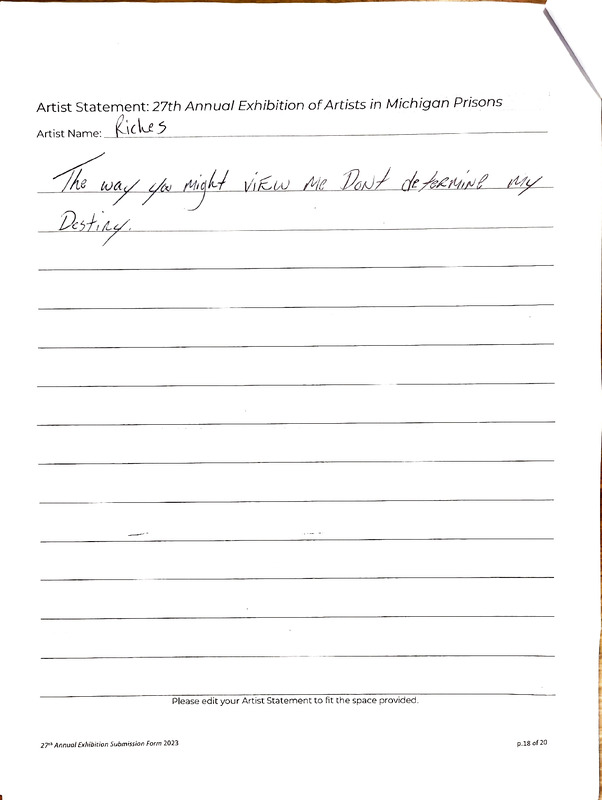 Artist Statement: 27th Annual Exhibition of Artists in Michigan Prisons
Artist Name: Riches
The way you might view me Dont determine my
Destiny.
Please edit your Artist Statement to fit the space provided.
27th Annual Exhibition Submission Form 2023 p.18 of 20